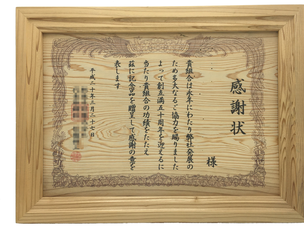 感謝状
様
貴組合は永年にわたり弊社発展の
ため多大なるご協力を賜りました
よって創立満五十周年を迎えるに
当たり貴組合の功績をたたえ
茲に記念品を贈呈して感謝の意を
表します
平成二十年三月二十七日